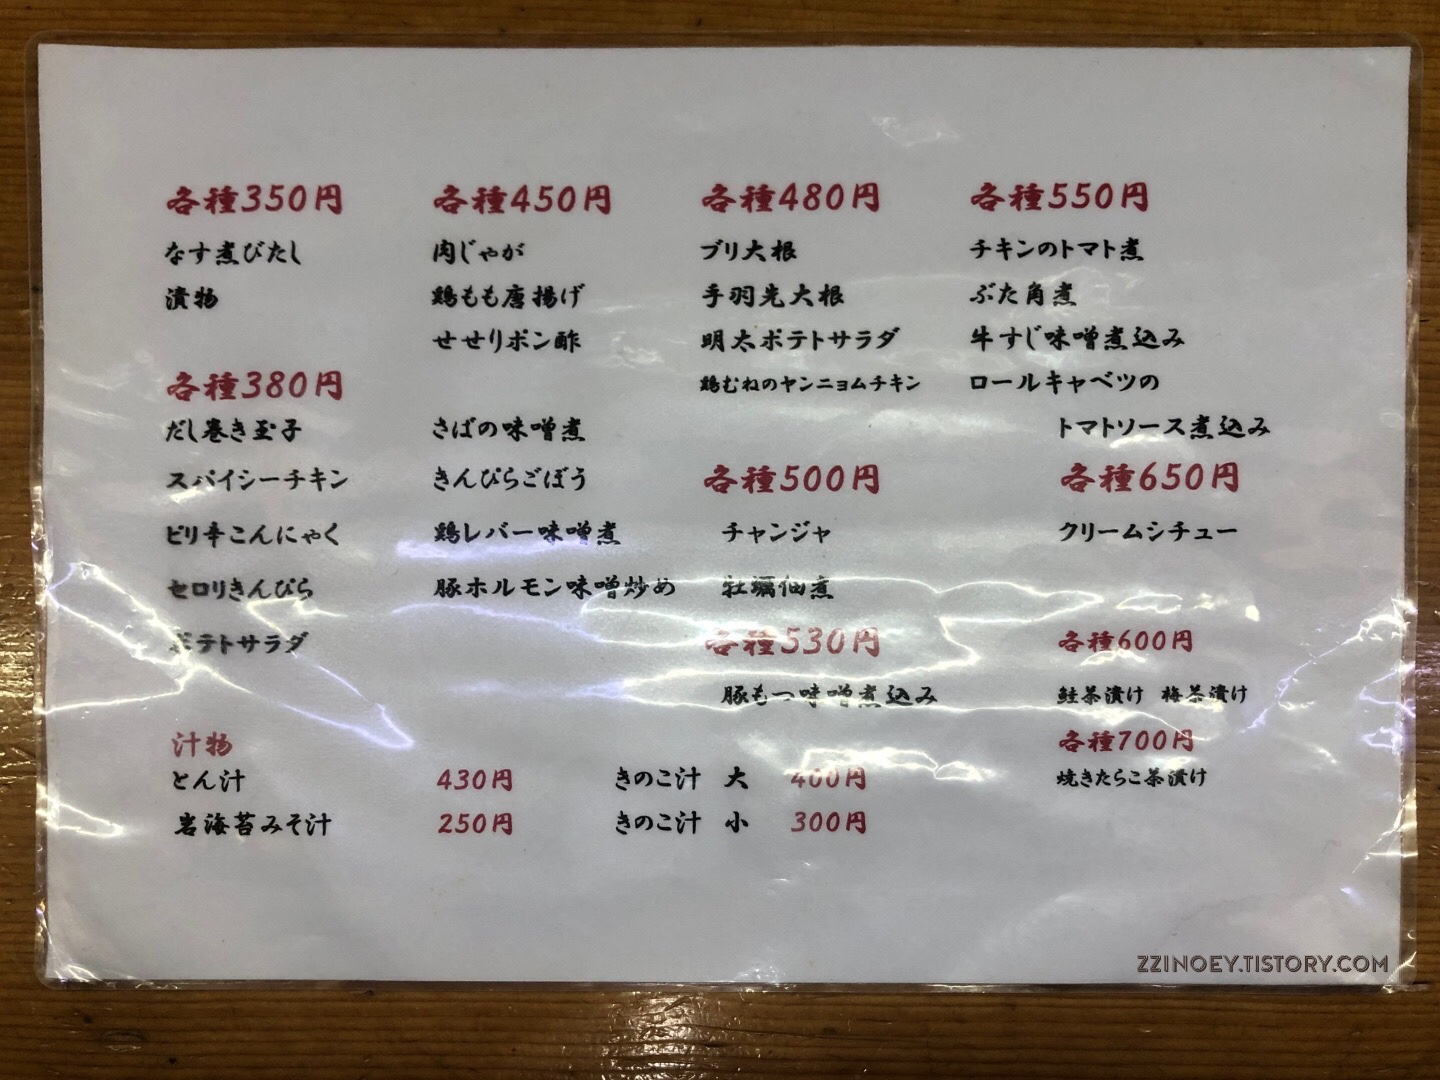 各種350円
なす煮びたし
漬物
各種380円
だし巻き玉子
スパイシーチキン
ピリ辛こんにゃく
セロリきんぴら
ポテトサラダ
各種450円
肉じゃが
鶏もも唐揚げ
せせりポン酢
さばの味噌煮
きんぴらごぼう
鶏レバー味噌煮
豚ホルモン味噌炒め
各種480円
ブリ大根
手羽先大根
明太ポテトサラダ
鶏むねのヤンニョムチキン
各種500円
チャンジャ
牡蠣佃煮
各種530円
豚もつ味噌煮込み
各種550円
チキンのトマト煮
ぶた角煮
牛すじ味噌煮込み
ロールキャベツの
トマトソース煮込み
各種650円
クリームシチュー
各種600円
鮭茶漬け 梅茶漬け
各種700円
焼きたらこ茶漬け
汁物
とん汁 430円 きのこ汁 大 400円
岩海苔みそ汁 250円 きのこ汁 小 300円
ZZINOEY.TISTORY.COM